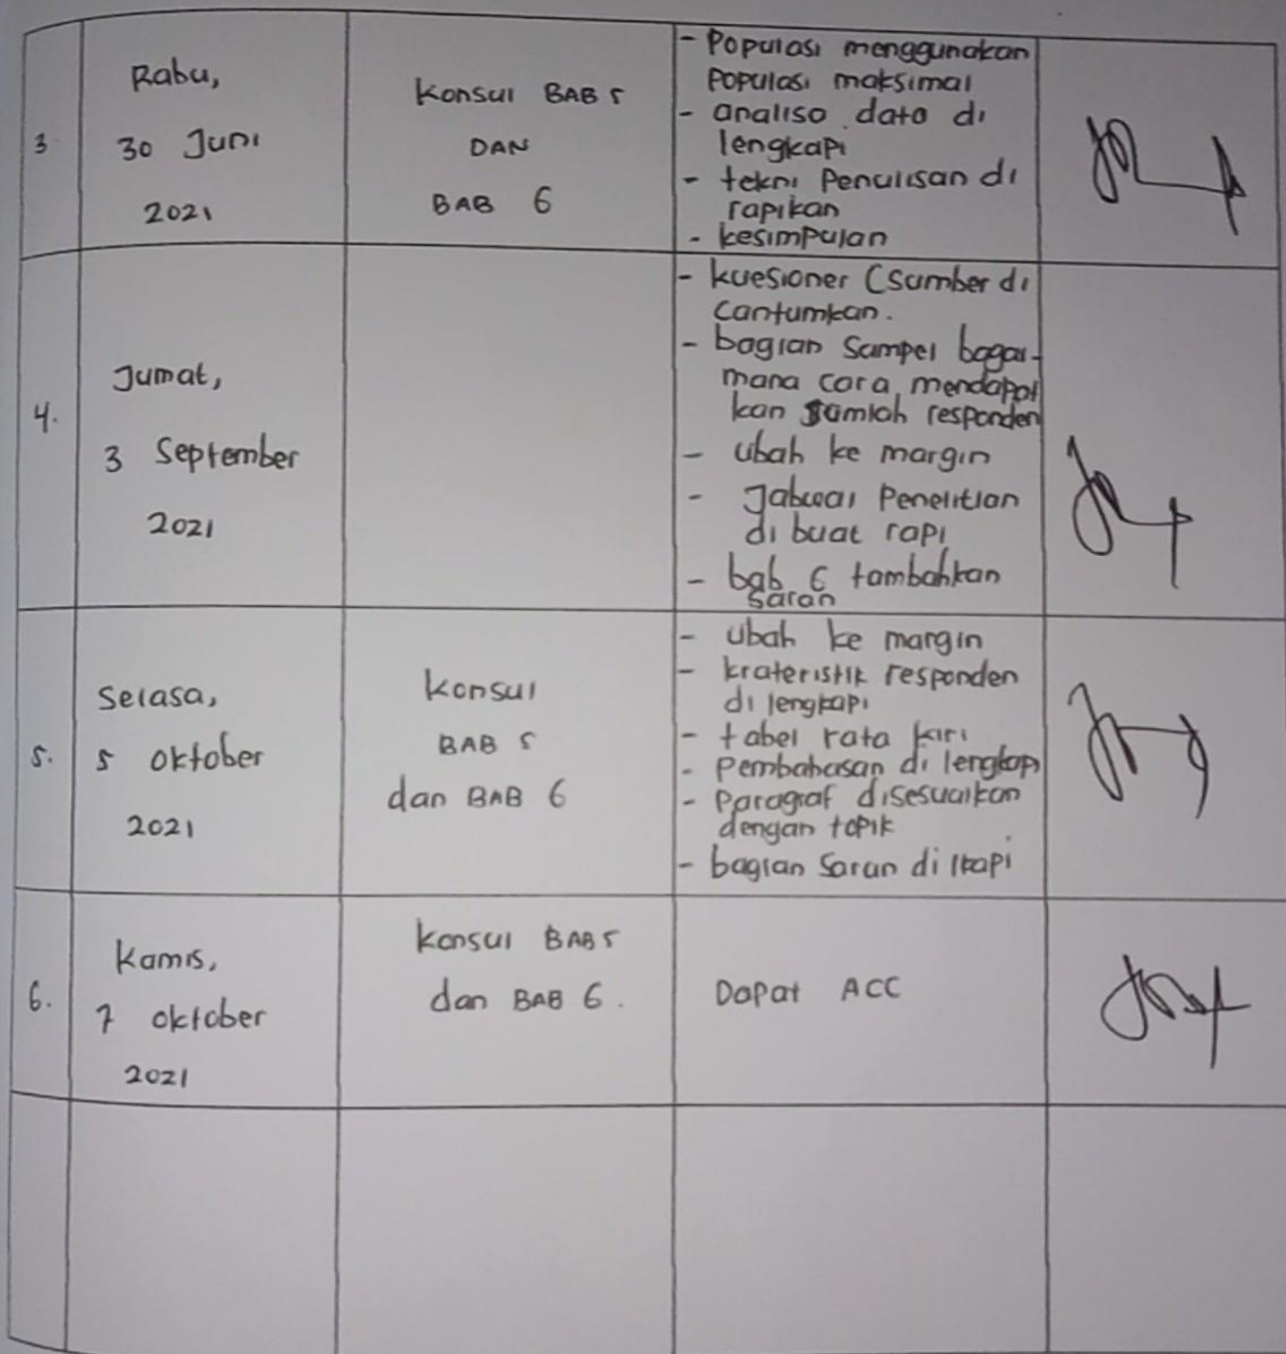 3.
Rabu,
30 Juni
2021
Konsul BAB 5
DAN
BAB 6
- Populasi menggunakan
populasi maksimal
- analisa data di
lengkapi
- tekni penulisan di
rapikan
- kesimpulan
4.
Jumat,
3 September
2021
- kuesioner (sumber di
cantumkan.
- bagian sampel bagai-
mana cara mendapat
kan jumlah responden
- ubah ke margin
- Jadwal penelitian
di buat rapi
- bab 6 tambahkan
saran
5.
Selasa,
5 oktober
2021
konsul
BAB 5
dan BAB 6
- ubah ke margin
- krateristik responden
di lengkapi
- tabel rata kiri
- pembahasan di lengkapi
- paragraf disesuaikan
dengan topik
- bagian saran di lkapi
6.
Kamis,
7 oktober
2021
konsul BAB 5
dan BAB 6.
Dapat ACC